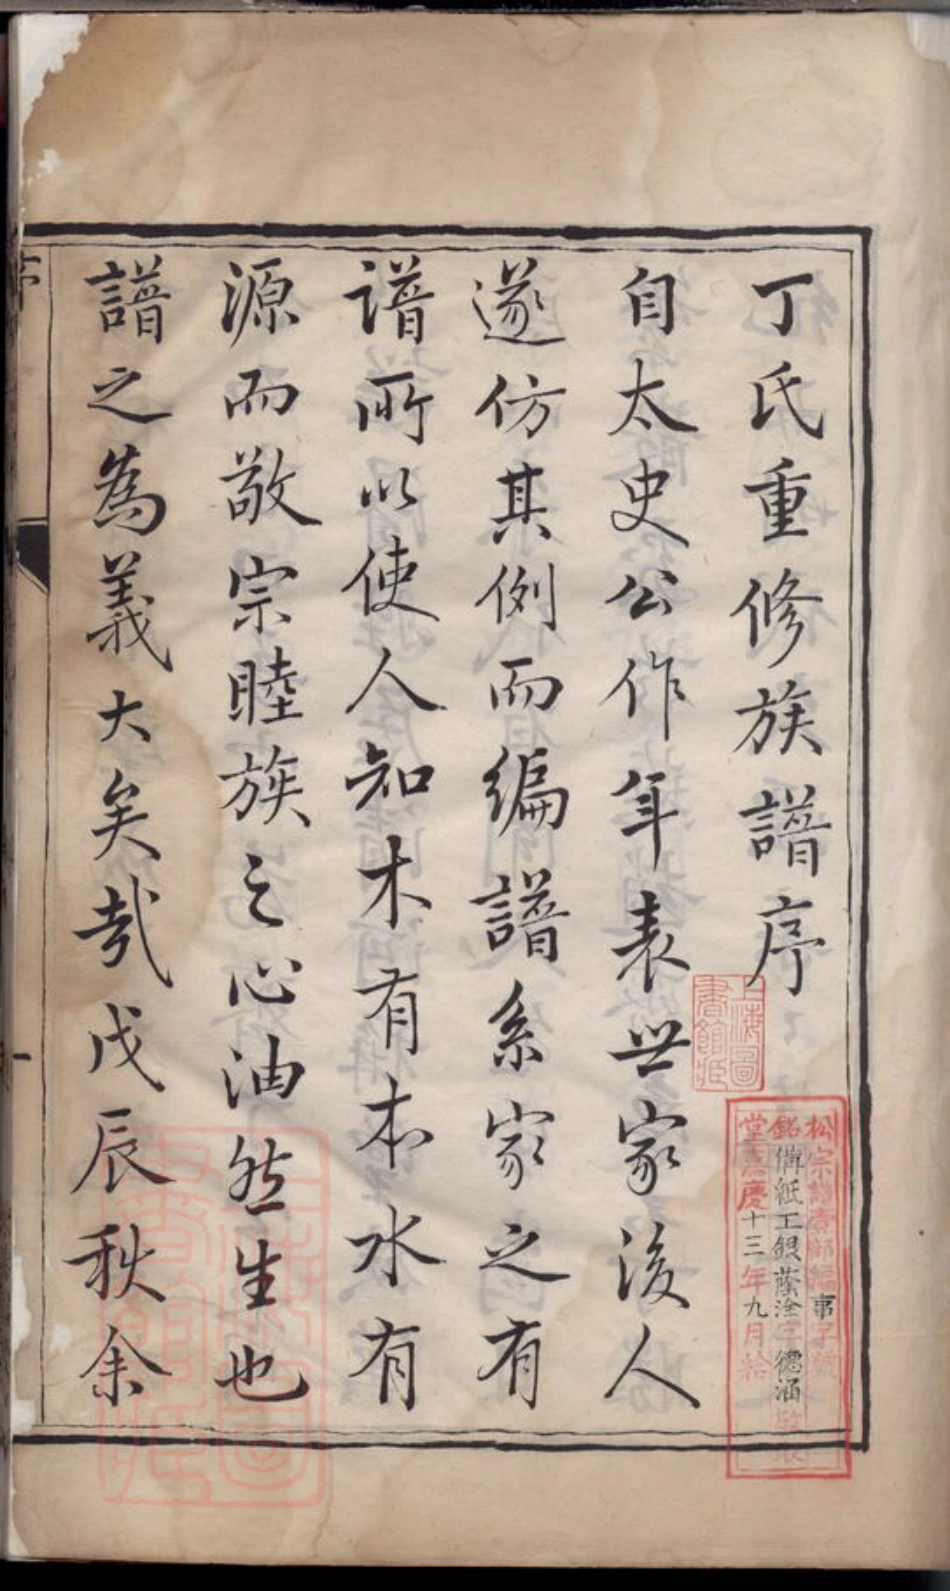 丁氏重修族譜序
自太史公作年表世家後人
遂仿其例而編譜系家之有
譜所以使人知木有本水有
源而敬宗睦族之心油然生也
譜之為義大矣哉戊辰秋余
上海圖
書館
松宗譜
銘備紙工銀
德涵
堂嘉慶十三年九月給
序
一